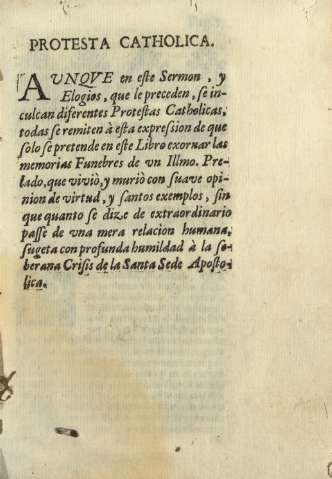 PROTESTA CATHOLICA.
AUNQVE en este Sermon, y
Elogios, que le preceden, se in-
culcan diferentes Protestas Catholicas,
todas se remiten à esta expression de que
solo se pretende en este Libro exornar las
memorias Funebres de vn Illmo. Pre-
lado, que vivió, y murió con suave opi-
nion de virtud, y santos exemplos, sin
que quanto se dize de extraordinario
passe de vna mera relacion humana,
sugeta con profunda humildad à la so-
berana Crisis de la Santa Sede Aposto-
lica.